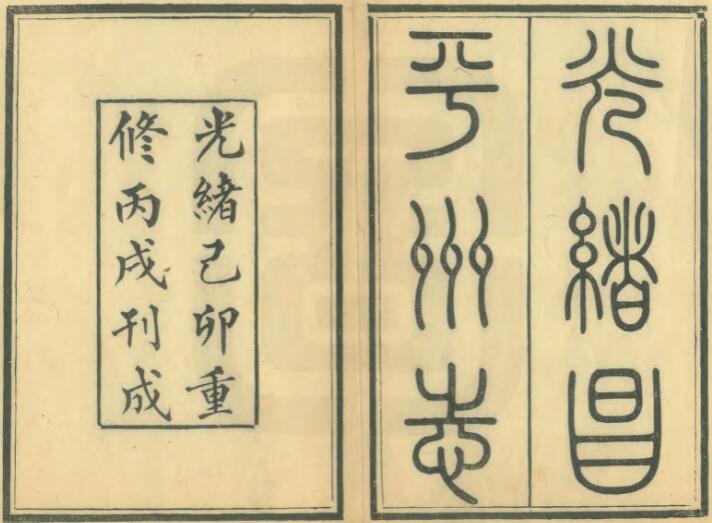 光緒昌
平州志
光緒己卯重
修丙戌刊成